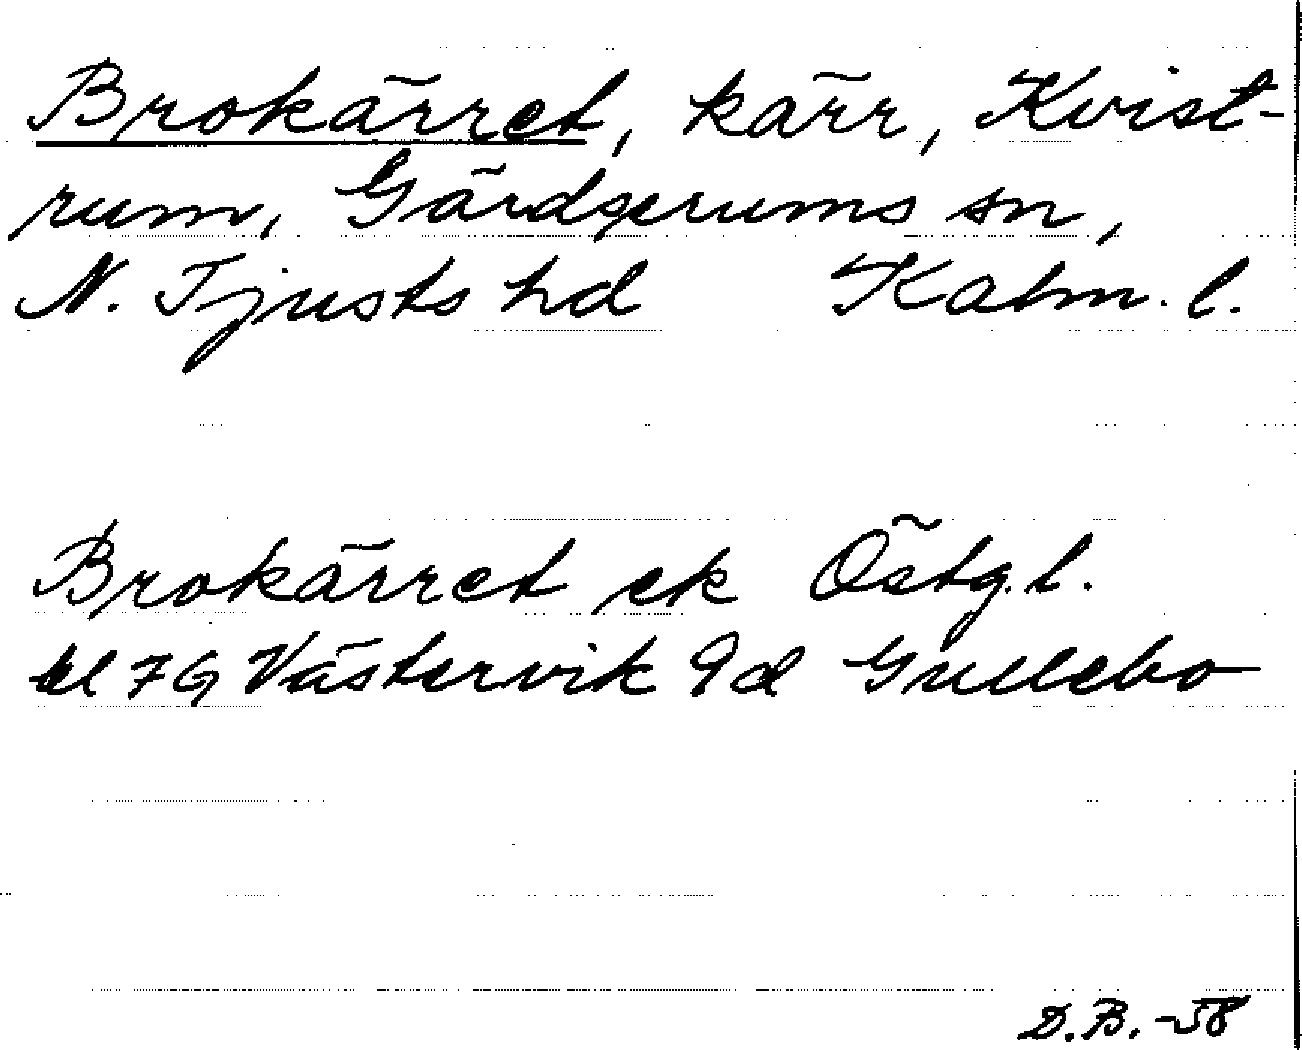 Brokärret, kärr, Kvist-
rum, Gärdserums sn,
N. Tjusts hd Kalm. l.
Brokärret ek Östg. l.
bl 7G Västervik 9d Gullebo
D.B. -58